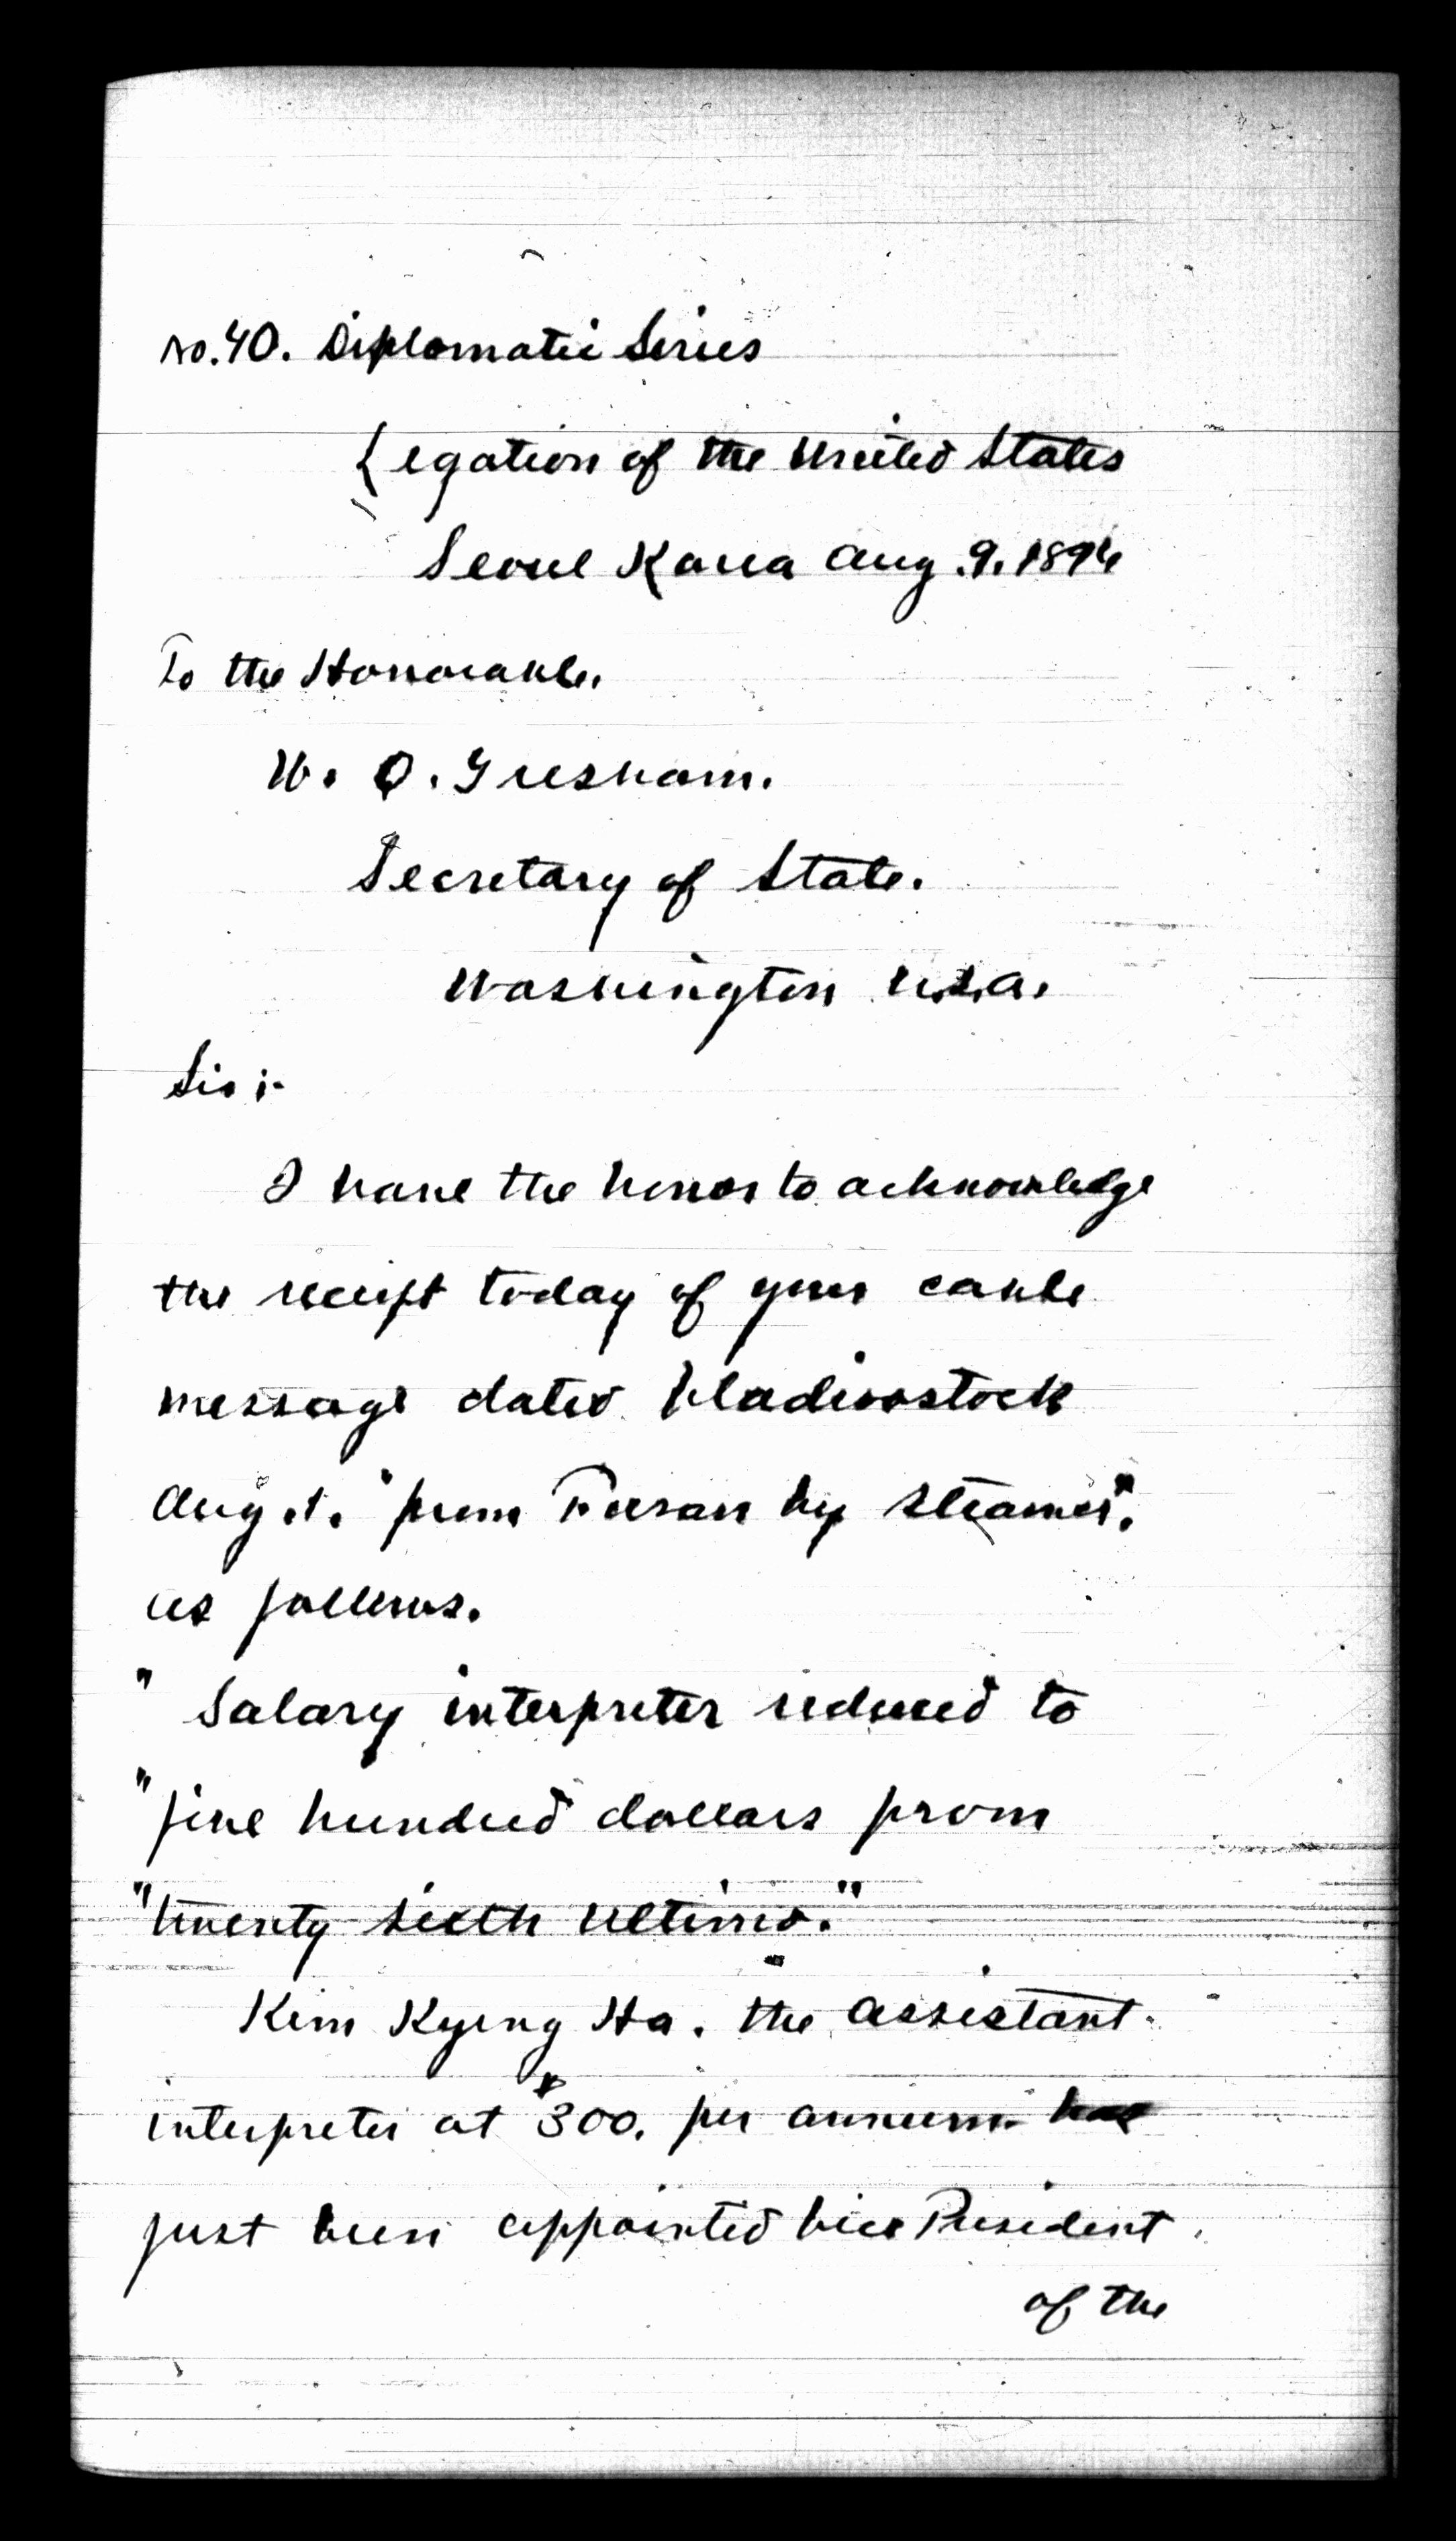 No. 40. Diplomatic Series
Legation of the United States
Seoul Korea Aug. 9. 1894
To the Honorable.
W. Q. Gresham.
Secretary of State.
Washington U.S.A.
Sir:-
I have the honor to acknowledge
the receipt today of your cable
message dated Vladivostock
Aug. 1. "from Fusan by steamer".
as follows.
" Salary interpreter reduced to
" five hundred dollars from
" twenty sixth ultimo."
Kim Kyeng Ha. the assistant
interpreter at $300. per annum has
just been appointed Vice President
of the